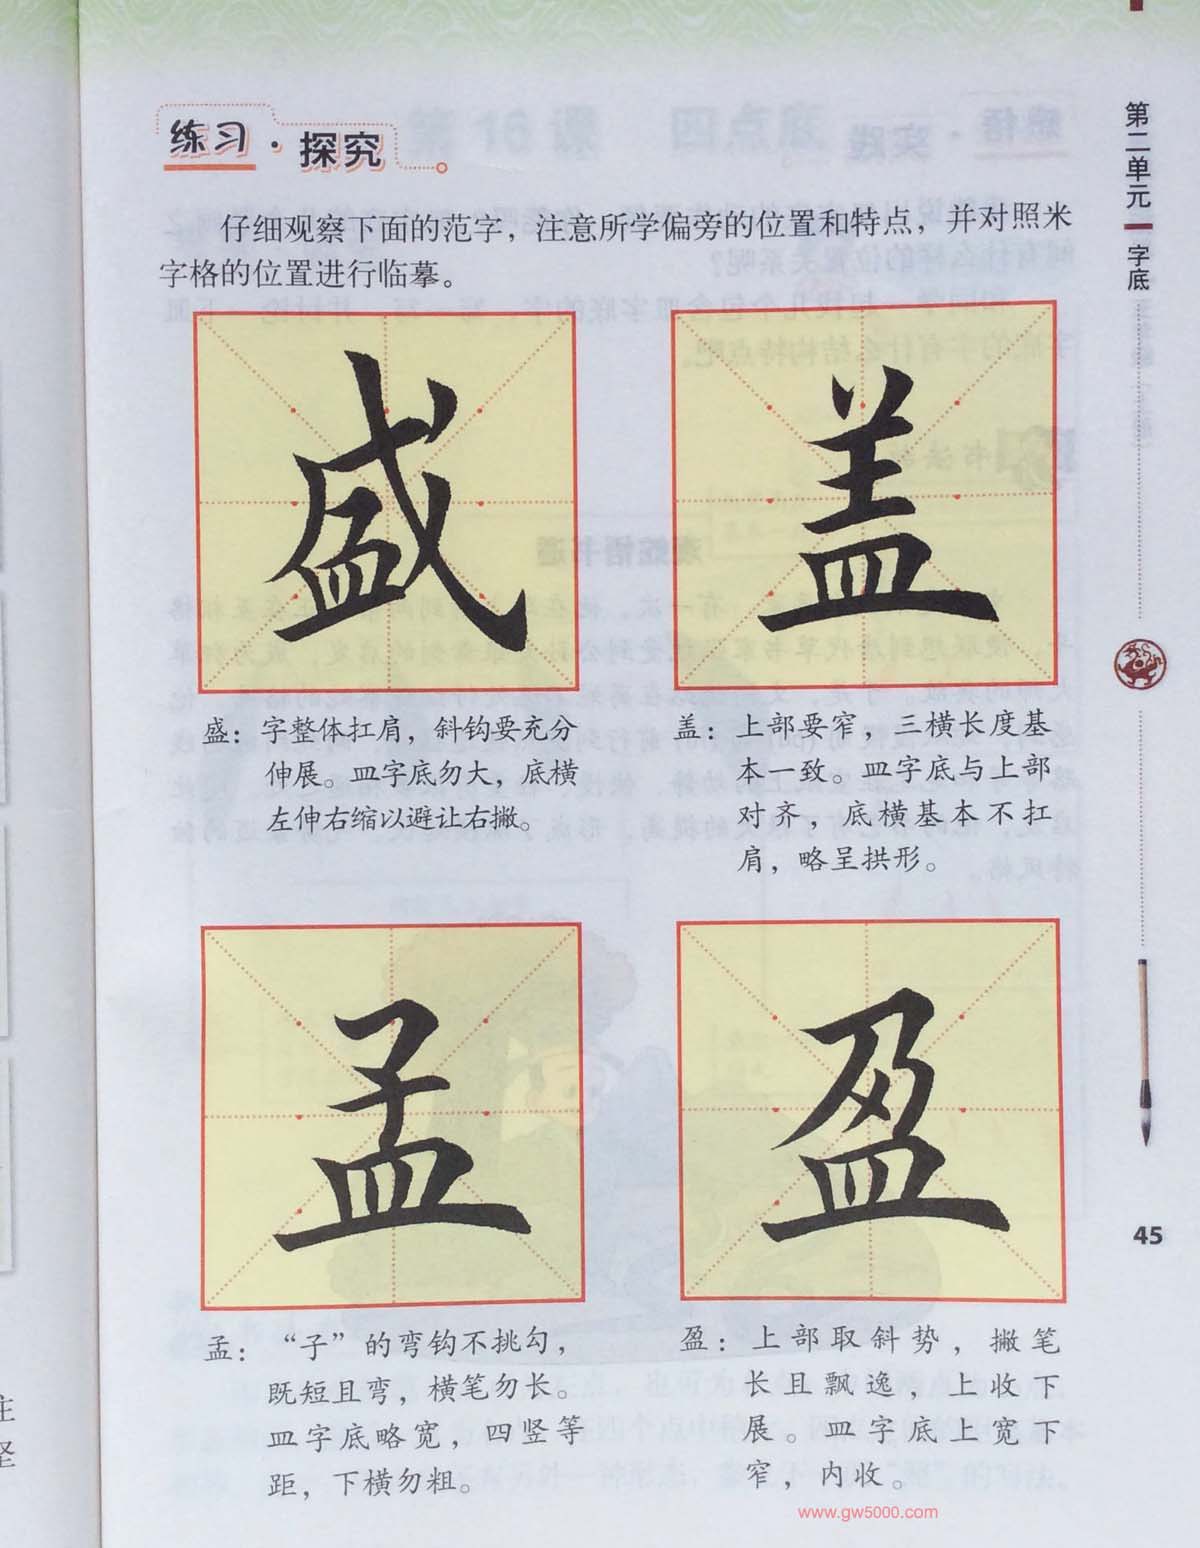 练习·探究
仔细观察下面的范字，注意所学偏旁的位置和特点，并对照米
字格的位置进行临摹。
盛
盖
盛：字整体扛肩，斜钩要充分
伸展。皿字底勿大，底横
左伸右缩以避让右撇。
盖：上部要窄，三横长度基
本一致。皿字底与上部
对齐，底横基本不扛
肩，略呈拱形。
孟
盈
孟：“子”的弯钩不挑勾，
既短且弯，横笔勿长。
皿字底略宽，四竖等
距，下横勿粗。
盈：上部取斜势，撇笔
长且飘逸，上收下
展。皿字底上宽下
窄，内收。
第二单元
字底
45
www.gw5000.com